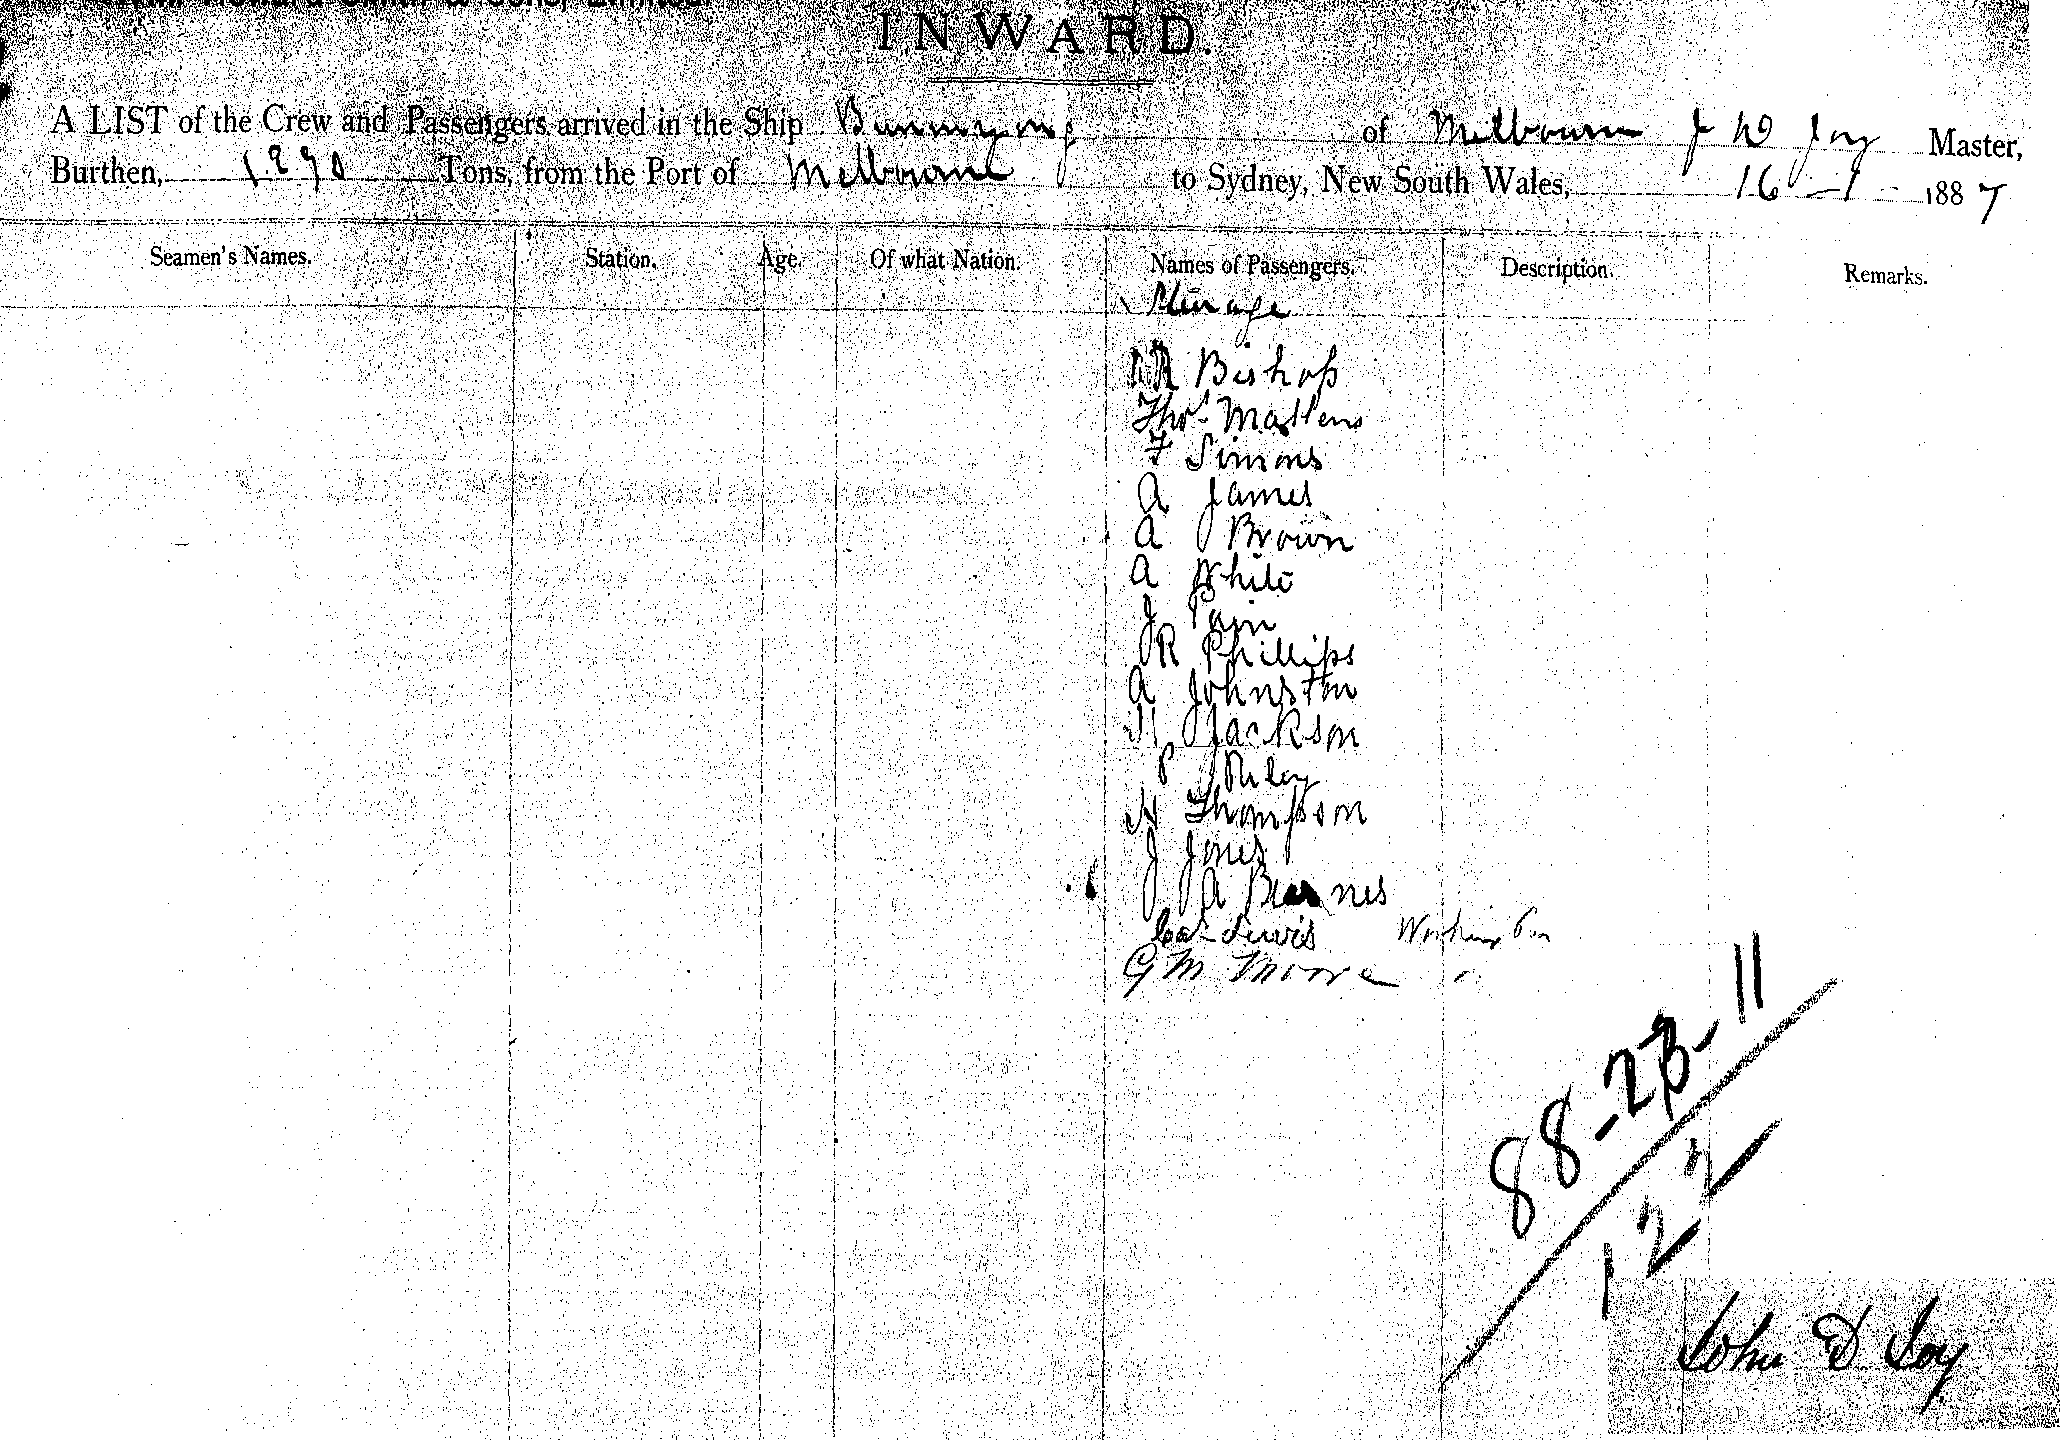 INWARD.
A LIST of the Crew and Passengers arrived in the Ship Bunninyong of Melbourne J D Joy Master,
Burthen, Tons, from the Port of Melbourne to Sydney, New South Wales, 16-1 1887
Seamen's Names. Station. Age. Of what Nation. Names of Passengers. Description. Remarks.
Steerage
R Bishop
Thos
F Simons
A James
A Brown
A White
J Pain
R Phillips
A Johnston
Jackson
P Riley
H Thompson
J Jones
A
Lewis Working
G M Moore
88-23-11
122
John D. Joy